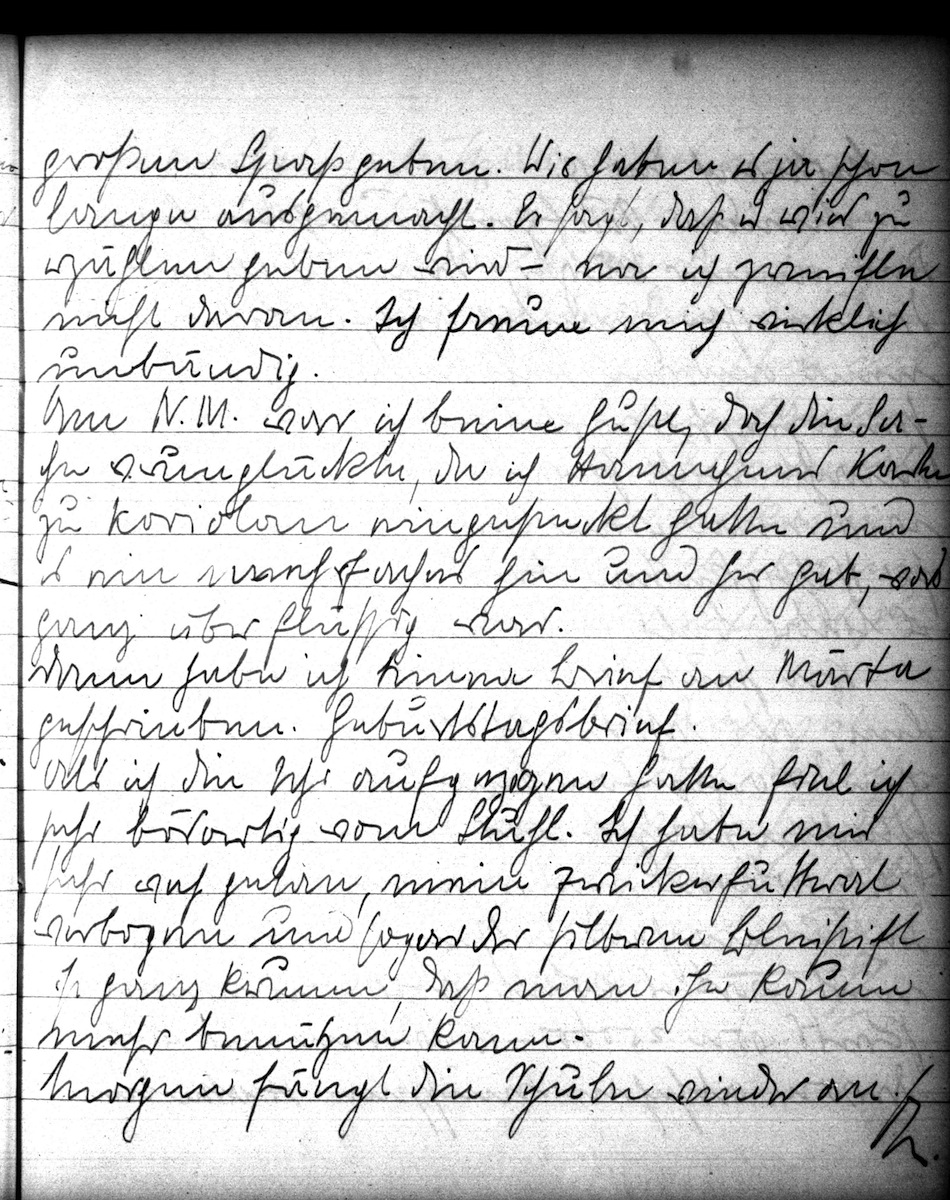 großen Spaß geben. Wir haben es ja schon
lange ausgemacht. Er sagt, daß er viel zu
erzählen haben wird – na ich zweifle
nicht daran. Ich freue mich wirklich
unbändig.
Am N.M. war ich beine Gustl, doch die Sa-
che verunglückte, da ich Hannchens Karte
zu Koriolan eingesteckt hatte und
es ein mehrfaches hin und her gab, was
ganz überflüssig war.
Dann habe ich einen Brief an Märta
geschrieben. Geburtstagsbrief.
Als ich die Uhr aufgezogen hatte fiel ich
sehr bösartig vom Stuhl. Ich habe mir
sehr weh getan, mein Zwickerfutteral
verbogen und sogar der silberne Bleistift
ist ganz krumm, daß man ihn kaum
mehr benützen kann.
Morgen fängt die Schule wieder an.